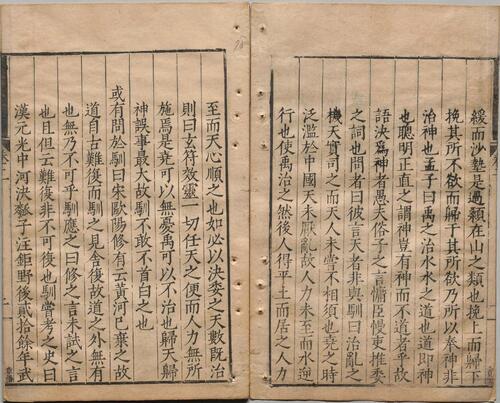 緩而沙墊是過顙在山之類也挽上而歸下
挽其所不欲而歸于其所欲乃所以奉神非
治神也孟子曰禹之治水水之道也道即神
也聰明正直之謂神豈有神而不道者乎故
語決為神者愚夫俗子之言慵臣慢吏推委
之詞也問者曰彼言天者非與馴曰治亂之
機天實司之而天人未嘗不相須也堯之時
泛濫於中國天未厭亂故人力未至而水逆
行也使禹治之然後人得平土而居之人力
至而天心順之也如必以決委之天數既治
則曰玄符效靈一切任天之便而人力無所
施焉是堯可以無憂禹可以不治也歸天歸
神誤事最大故馴不敢不首白之也
或有問於馴曰宋歐陽修有云黃河已棄之故
道自古難復而馴之見舍復故道之外無有
也無乃不可乎馴應之曰修之言未試之言
也且但云難復非不可復也馴嘗考之史曰
漢元光中河決瓠子注鉅野後貳拾餘年武